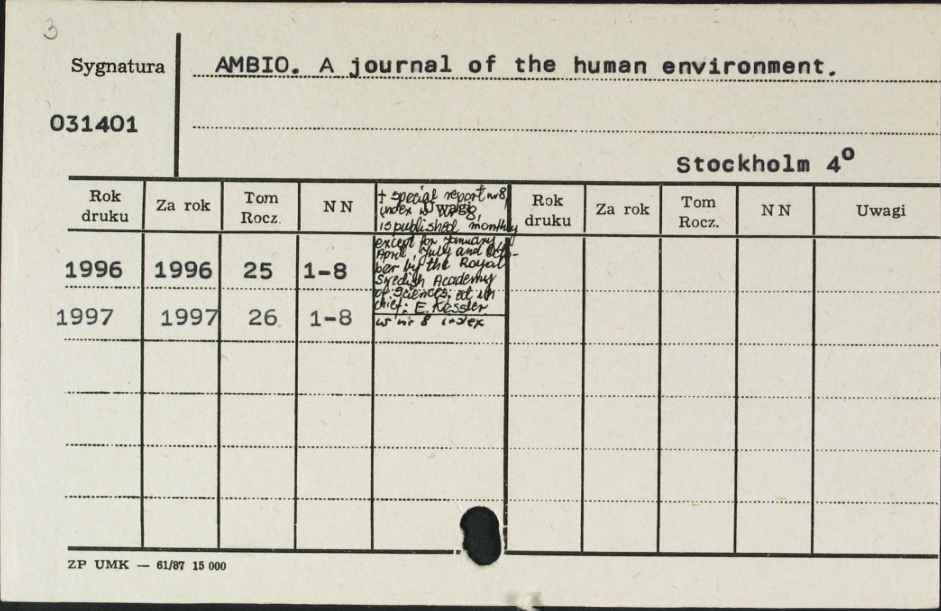 3
Sygnatura
AMBIO. A journal of the human environment.
031401
Stockholm 4º
Rok druku Za rok Tom Rocz. NN Uwagi Rok druku Za rok Tom Rocz. NN Uwagi
+ special report nr 8,
index w nr 8,
is published monthly
except for January,
April, July and Octo-
ber by the Royal
Swedish Academy
of Sciences; ed. in
chief: E. Kessler
1996 1996 25 1-8
1997 1997 26 1-8 w nr 8 index
ZP UMK — 61/87 15 000